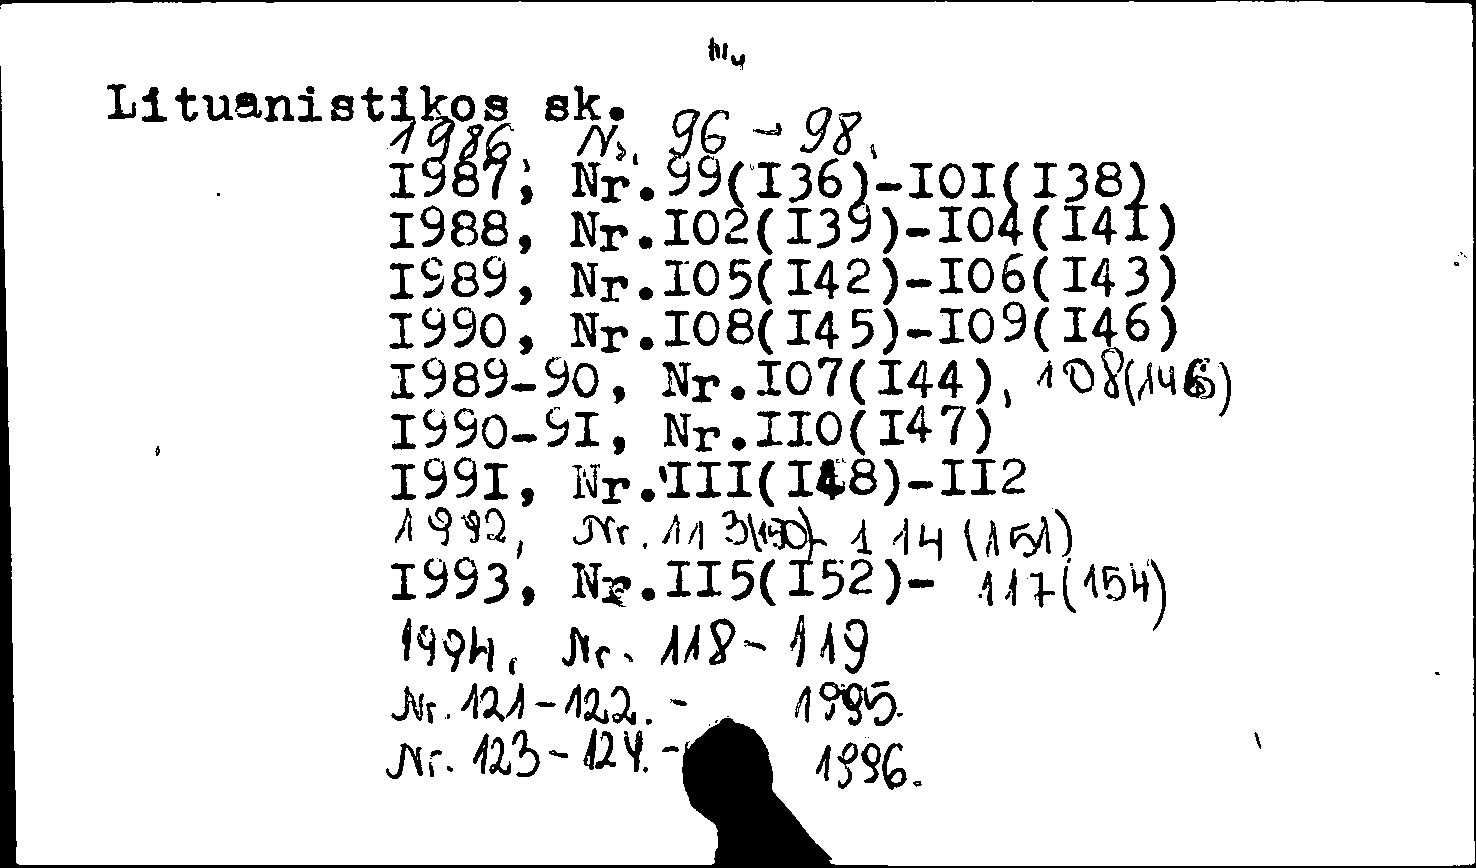 Lituanistikos sk.
1986, Nr. 96 - 98.
I987, Nr.99(I36)-IOI(I38)
I988, Nr.IO2(I39)-IO4(I4I)
I989, Nr.IO5(I42)-IO6(I43)
I990, Nr.IO8(I45)-IO9(I46)
I989-90, Nr.IO7(I44), 108(146)
I990-9I, Nr.IIO(I47)
I99I, Nr.III(I48)-II2
1992, Nr. 113(150)- 114 (151)
I993, Nr.II5(I52)- 117(154)
1994, Nr. 118- 119
Nr. 121-122. - 1995.
Nr. 123-124. - 1996.